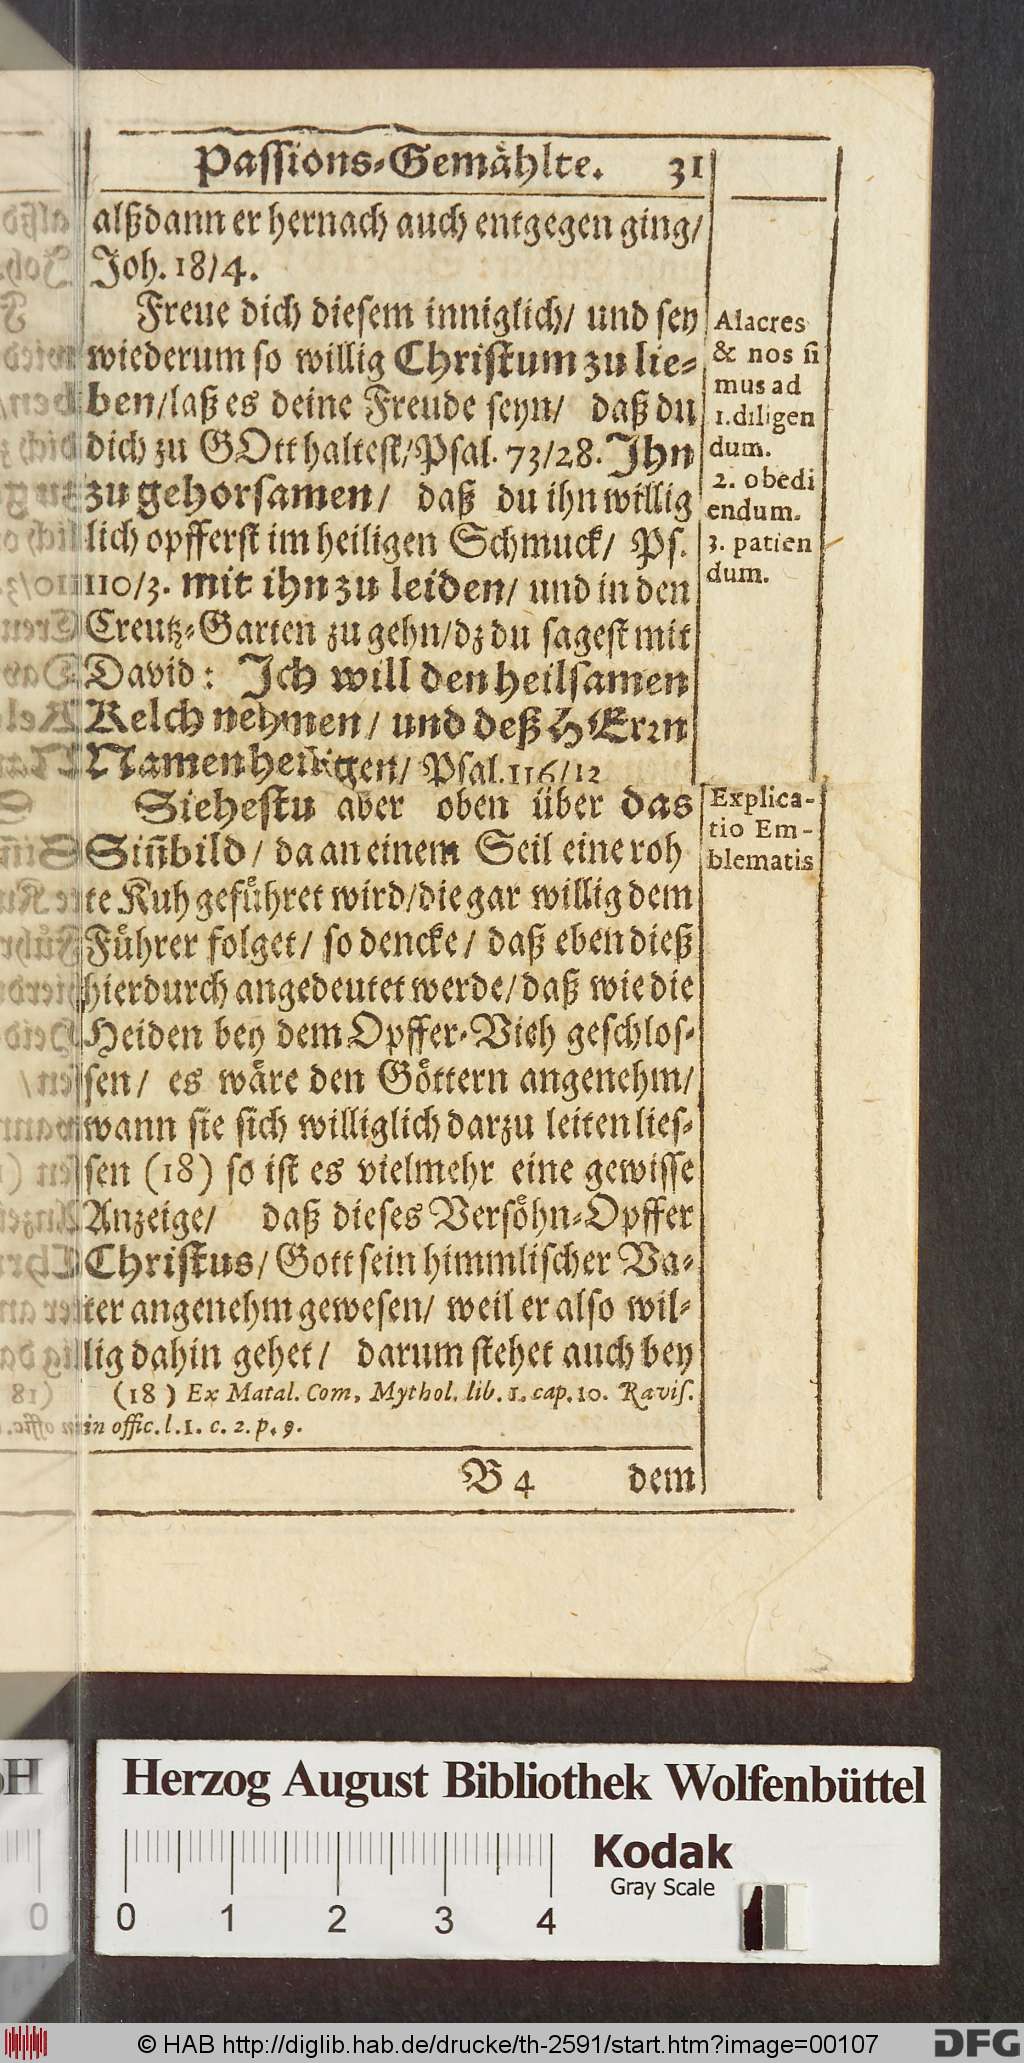 Passions-Gemählte. 31
alßdann er hernach auch entgegen ging/
Joh. 18/4.
Freue dich diesem inniglich/ und sey
wiederum so willig Christum zu lie-
ben/laß es deine Freude seyn/ daß du
dich zu GOtt haltest/Psal. 73/28. Ihn
zu gehorsamen/ daß du ihn willig
lich opfferst im heiligen Schmuck/ Ps.
110/3. mit ihn zu leiden/ und in den
Creutz-Garten zu gehn/dz du sagest mit
David: Ich will den heilsamen
Kelch nehmen/ und deß HErrn
Namen heiligen/ Psal. 116/12
Alacres
& nos si
mus ad
1. diligen
dum.
2. obedi
endum.
3. patien
dum.
Siehestu aber oben über das
Siñbild/ da an einem Seil eine roh
te Kuh geführet wird/die gar willig dem
Führer folget/ so dencke/ daß eben dieß
hierdurch angedeutet werde/daß wie die
Heiden bey dem Opffer-Vieh geschlos-
sen/ es wäre den Göttern angenehm/
wann sie sich williglich darzu leiten lies-
sen (18) so ist es vielmehr eine gewisse
Anzeige/ daß dieses Versöhn-Opffer
Christus/ Gott sein himmlischer Va-
ter angenehm gewesen/ weil er also wil-
lig dahin gehet/ darum stehet auch bey
Explica-
tio Em-
blematis
(18) Ex Matal. Com, Mythol. lib. 1. cap. 10. Ravis.
in offic. l. 1. c. 2. p. 9.
B 4 dem
Herzog August Bibliothek Wolfenbüttel
Kodak
Gray Scale
0 1 2 3 4
© HAB http://diglib.hab.de/drucke/th-2591/start.htm?image=00107
DFG